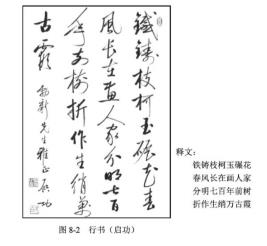 鐵鑄枝柯玉碾花春
風長在畫人家分明七百
年前樹折作生綃萬
古霞 勃新先生雅正 启功
释文：
铁铸枝柯玉碾花
春风长在画人家
分明七百年前树
折作生纳万古霞
图 8-2 行书（启功）